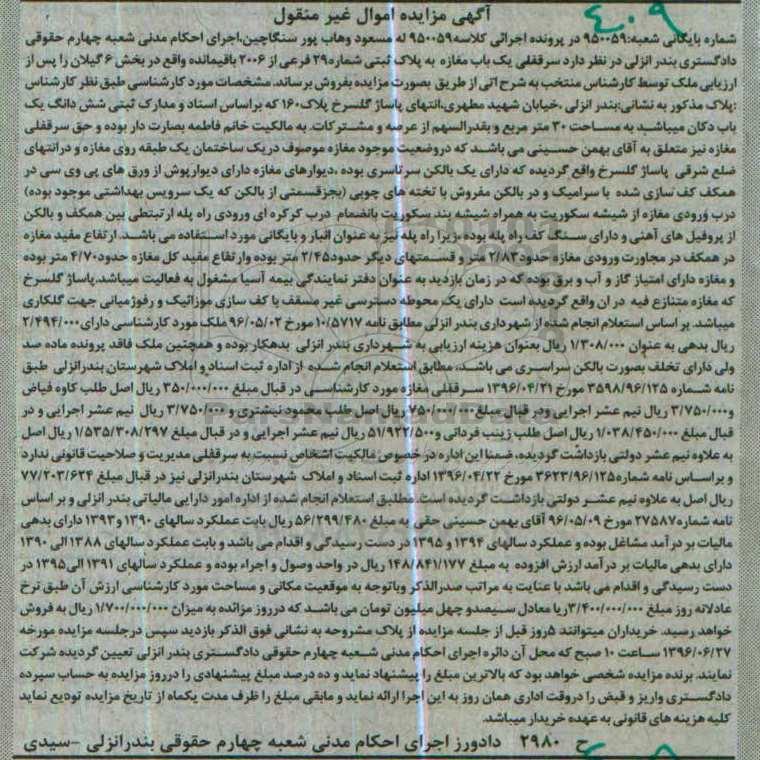 ۴۰۹
آگهی مزایده اموال غیر منقول
شماره بایگانی شعبه:۹۵۰۰۵۹ در پرونده اجرائی کلاسه۹۵۰۰۵۹ له مسعود وهاب پور سنگاچین،اجرای احکام مدنی شعبه چهارم حقوقی
دادگستری بندر انزلی در نظر دارد سرقفلی یک باب مغازه به پلاک ثبتی شماره۲۹ فرعی از ۲۰۰۶ باقیمانده واقع در بخش ۶ گیلان را پس از
ارزیابی ملک توسط کارشناس منتخب به شرح آتی از طریق بصورت مزایده بفروش برساند. مشخصات مورد کارشناسی طبق نظر کارشناس
:پلاک مذکور به نشانی:بندر انزلی ،خیابان شهید مطهری،انتهای پاساژ گلسرخ پلاک۱۶۰ که براساس اسناد و مدارک ثبتی شش دانگ یک
باب دکان میباشد به مساحت ۳۰ متر مربع و بقدرالسهم از عرصه و مشترکات. به مالکیت خانم فاطمه بصارت دار بوده و حق سرقفلی
مغازه نیز متعلق به آقای بهمن حسینی می باشد که دروضعیت موجود مغازه موصوف دریک ساختمان یک طبقه روی مغازه و درانتهای
ضلع شرقی پاساژ گلسرخ واقع گردیده که دارای یک بالکن سرتاسری بوده ،دیوارهای مغازه دارای دیوارپوش از ورق های پی وی سی در
همکف کف سازی شده با سرامیک و در بالکن مفروش با تخته های چوبی (بجزقسمتی از بالکن که یک سرویس بهداشتی موجود بوده)
درب ورودی مغازه از شیشه سکوریت به همراه شیشه بند سکوریت بانضمام درب کرکره ای ورودی راه پله ارتبتطی بین همکف و بالکن
از پروفیل های آهنی و دارای سنگ کف راه پله بوده ،زیرا راه پله نیز به عنوان انبار و بایگانی مورد استفاده می باشد. ارتفاع مفید مغازه
در همکف در مجاورت ورودی مغازه حدود۲/۸۳ متر و قسمتهای دیگر حدود۲/۴۵ متر بوده وارتفاع مفید کل مغازه حدود۴/۷۰ متر بوده
و مغازه دارای امتیاز گاز و آب و برق بوده که در زمان بازدید به عنوان دفتر نمایندگی بیمه آسیا مشغول به فعالیت میباشد.پاساژ گلسرخ
که مغازه متنازع فیه در ان واقع گردیده است دارای یک محوطه دسترسی غیر مسقف با کف سازی موزائیک و رفوژمیانی جهت گلکاری
میباشد. بر اساس استعلام انجام شده از شهرداری بندر انزلی مطابق نامه ۱۰/۵۷۱۷ مورخ ۹۶/۰۵/۰۲ ملک مورد کارشناسی دارای۲/۴۹۴/۰۰۰
ریال بدهی به عنوان ۱/۳۰۸/۰۰۰ ریال بعنوان هزینه ارزیابی به شهرداری بندر انزلی بدهکار بوده و همچنین ملک فاقد پرونده ماده صد
ولی دارای تخلف بصورت بالکن سراسری می باشد، مطابق استعلام انجام شده از اداره ثبت اسناد و املاک شهرستان بندرانزلی طبق
نامه شماره ۳۵۹۸/۹۶/۱۲۵ مورخ ۱۳۹۶/۰۴/۲۱ سرقفلی مغازه مورد کارشناسی در قبال مبلغ ۳۵۰/۰۰۰/۰۰۰ ریال اصل طلب کاوه فیاض
و۳/۷۵۰/۰۰۰ ریال نیم عشر اجرایی ودر قبال مبلغ۷۵۰/۰۰۰/۰۰۰ ریال اصل طلب محمود نیشتری و ۳/۷۵۰/۰۰۰ ریال نیم عشر اجرایی و در
قبال مبلغ ۱/۰۳۸/۴۵۰/۰۰۰ ریال اصل طلب زینب فردانی و۵۱/۹۲۲/۵۰۰ ریال نیم عشر اجرایی و در قبال مبلغ ۱/۵۳۵/۳۰۸/۲۹۷ ریال اصل
به علاوه نیم عشر دولتی بازداشت گردیده، ضمنا این اداره در خصوص مالکیت اشخاص نسبت به سرقفلی مدیریت و صلاحیت قانونی ندارد
و براساس نامه شماره۳۶۲۳/۹۶/۱۲۵ مورخ ۱۳۹۶/۰۴/۲۲ اداره ثبت اسناد و املاک شهرستان بندرانزلی نیز در قبال مبلغ ۷۷/۲۰۳/۶۲۴
ریال اصل به علاوه نیم عشر دولتی بازداشت گردیده است. مطابق استعلام انجام شده از اداره امور دارایی مالیاتی بندر انزلی و بر اساس
نامه شماره۲۷۵۸۷ مورخ ۹۶/۰۵/۰۹ آقای بهمن حسینی حقی به مبلغ ۵۶/۲۹۹/۴۸۰ ریال بابت عملکرد سالهای ۱۳۹۰ و۱۳۹۳ دارای بدهی
مالیات بر درآمد مشاغل بوده و عملکرد سالهای ۱۳۹۴ و ۱۳۹۵ در دست رسیدگی و اقدام می باشد و بابت عملکرد سالهای ۱۳۸۸ الی ۱۳۹۰
دارای بدهی مالیات بر درآمد ارزش افزوده به مبلغ ۱۴۸/۸۴۱/۱۷۷ ریال در واحد وصول و اجراء بوده و عملکرد سالهای ۱۳۹۱ الی۱۳۹۵ در
دست رسیدگی و اقدام می باشد با عنایت به مراتب صدرالذکر وباتوجه به موقعیت مکانی و مساحت مورد کارشناسی ارزش آن طبق نرخ
عادلانه روز مبلغ ۳/۴۰۰/۰۰۰/۰۰۰ریا معادل سیصدو چهل میلیون تومان می باشد که درروز مزائده به میزان ۱/۷۰۰/۰۰۰/۰۰۰ ریال به فروش
خواهد رسید. خریداران میتوانند ۵روز قبل از جلسه مزایده از پلاک مشروحه به نشانی فوق الذکر بازدید سپس درجلسه مزایده مورخه
۱۳۹۶/۰۶/۲۷ ساعت ۱۰ صبح که محل آن دائره اجرای احکام مدنی شعبه چهارم حقوقی دادگستری بندر انزلی تعیین گردیده شرکت
نمایند. برنده مزایده شخصی خواهد بود که بالاترین مبلغ را پیشنهاد نماید و ده درصد مبلغ پیشنهادی را درروز مزایده به حساب سپرده
دادگستری واریز و قبض را دروقت اداری همان روز به این اجرا ارائه نماید و مابقی مبلغ را ظرف مدت یکماه از تاریخ مزایده تودیع نماید
کلیه هزینه های قانونی به عهده خریدار میباشد.
ح ۲۹۸۰ دادورز اجرای احکام مدنی شعبه چهارم حقوقی بندرانزلی -سیدی